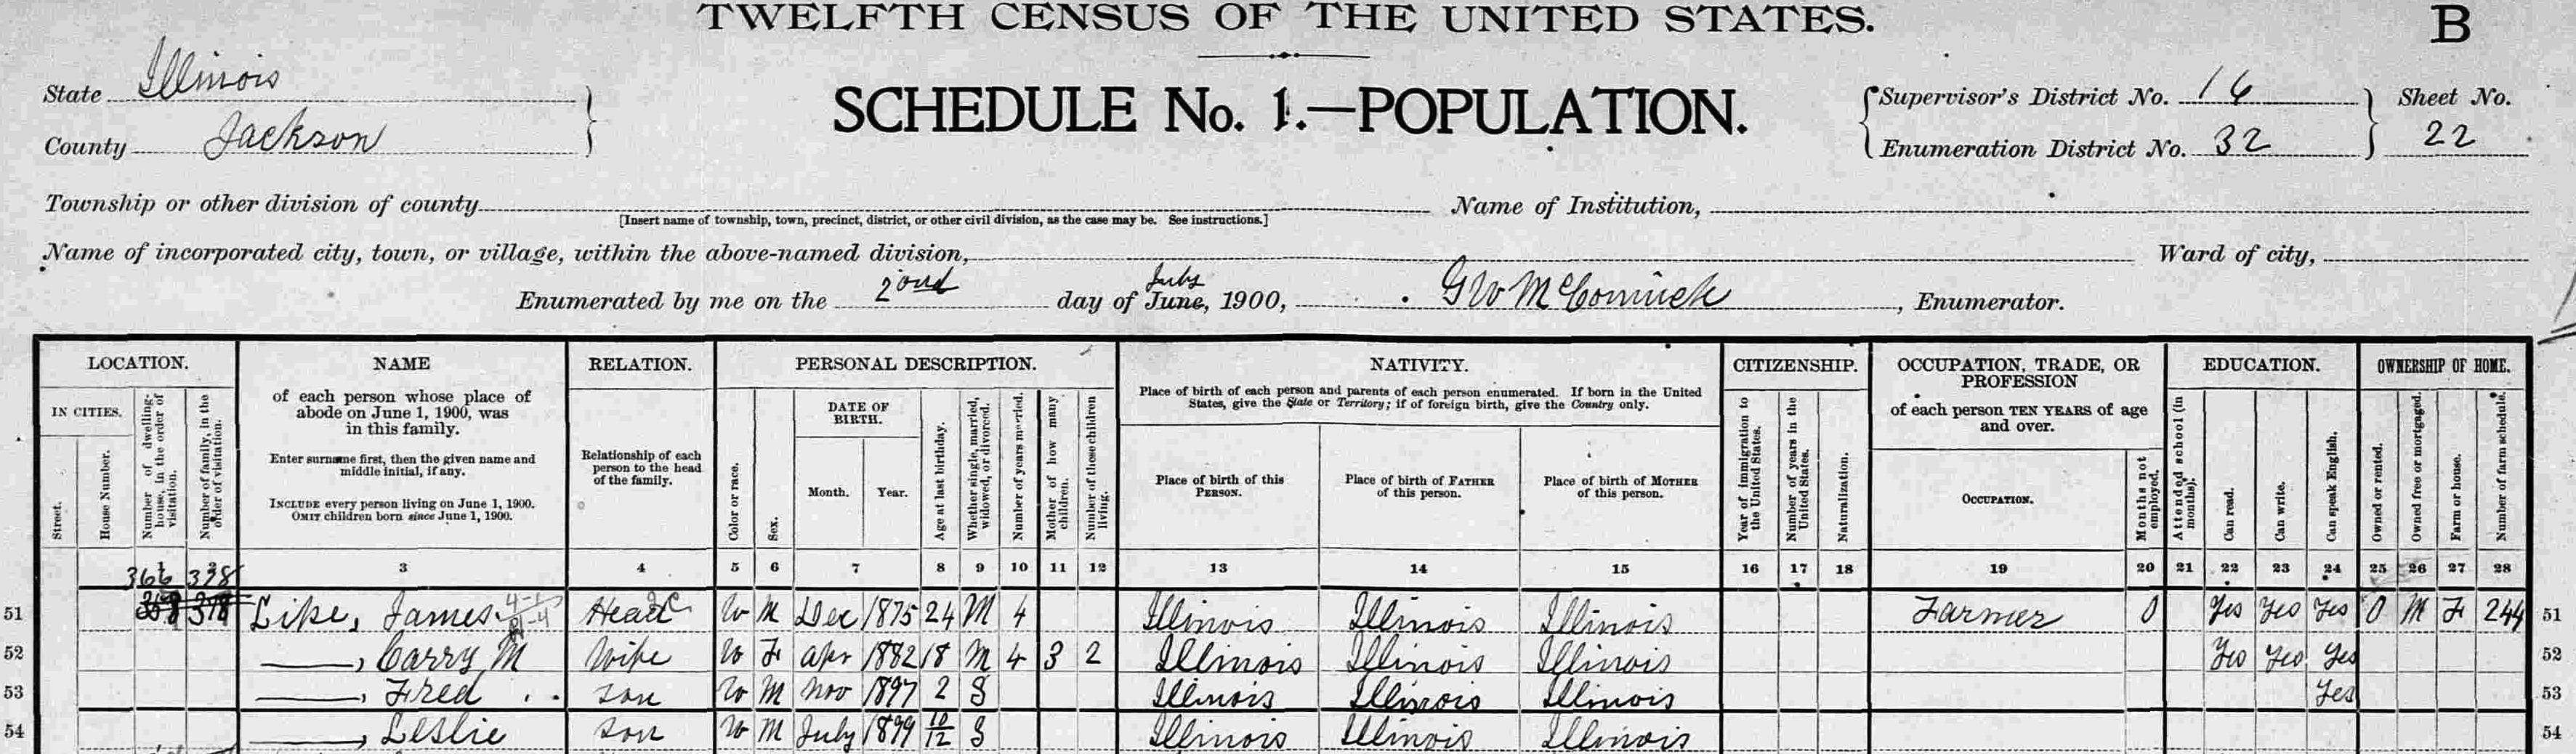 TWELFTH CENSUS OF THE UNITED STATES.
B
State Illinois
SCHEDULE No. 1.—POPULATION.
Supervisor's District No. 16
Sheet No.
County Jackson
Enumeration District No. 32
22
Township or other division of county
[Insert name of township, town, precinct, district, or other civil division, as the case may be. See instructions.]
Name of Institution,
Name of incorporated city, town, or village, within the above-named division,
Ward of city,
Enumerated by me on the 2ond day of June, 1900, G W McCormick, Enumerator.
LOCATION. NAME RELATION. PERSONAL DESCRIPTION. NATIVITY. CITIZENSHIP. OCCUPATION, TRADE, OR PROFESSION EDUCATION. OWNERSHIP OF HOME.
IN CITIES.
Street.
House Number.
Number of dwelling-house, in the order of visitation.
Number of family, in the order of visitation.
of each person whose place of abode on June 1, 1900, was in this family.
Enter surname first, then the given name and middle initial, if any.
INCLUDE every person living on June 1, 1900.
OMIT children born since June 1, 1900.
Relationship of each person to the head of the family.
Color or race.
Sex.
DATE OF BIRTH.
Month. Year.
Age at last birthday.
Whether single, married, widowed, or divorced.
Number of years married.
Mother of how many children.
Number of these children living.
Place of birth of each person and parents of each person enumerated. If born in the United States, give the State or Territory; if of foreign birth, give the Country only.
Place of birth of this PERSON.
Place of birth of FATHER of this person.
Place of birth of MOTHER of this person.
Year of immigration to the United States.
Number of years in the United States.
Naturalization.
of each person TEN YEARS of age and over.
OCCUPATION.
Months not employed.
Attended school (in months).
Can read.
Can write.
Can speak English.
Owned or rented.
Owned free or mortgaged.
Farm or house.
Number of farm schedule.
1 2 3 4 5 6 7 8 9 10 11 12 13 14 15 16 17 18 19 20 21 22 23 24 25 26 27 28
366 378
51 Lipe, James Head W M Dec 1875 24 M 4 Illinois Illinois Illinois Farmer 0 Yes Yes Yes O M F 244 51
52 ——, Carry M Wife W F Apr 1882 18 M 4 3 2 Illinois Illinois Illinois Yes Yes Yes 52
53 ——, Fred son W M Nov 1897 2 S Illinois Illinois Illinois Yes 53
54 ——, Leslie son W M July 1899 10/12 S Illinois Illinois Illinois 54